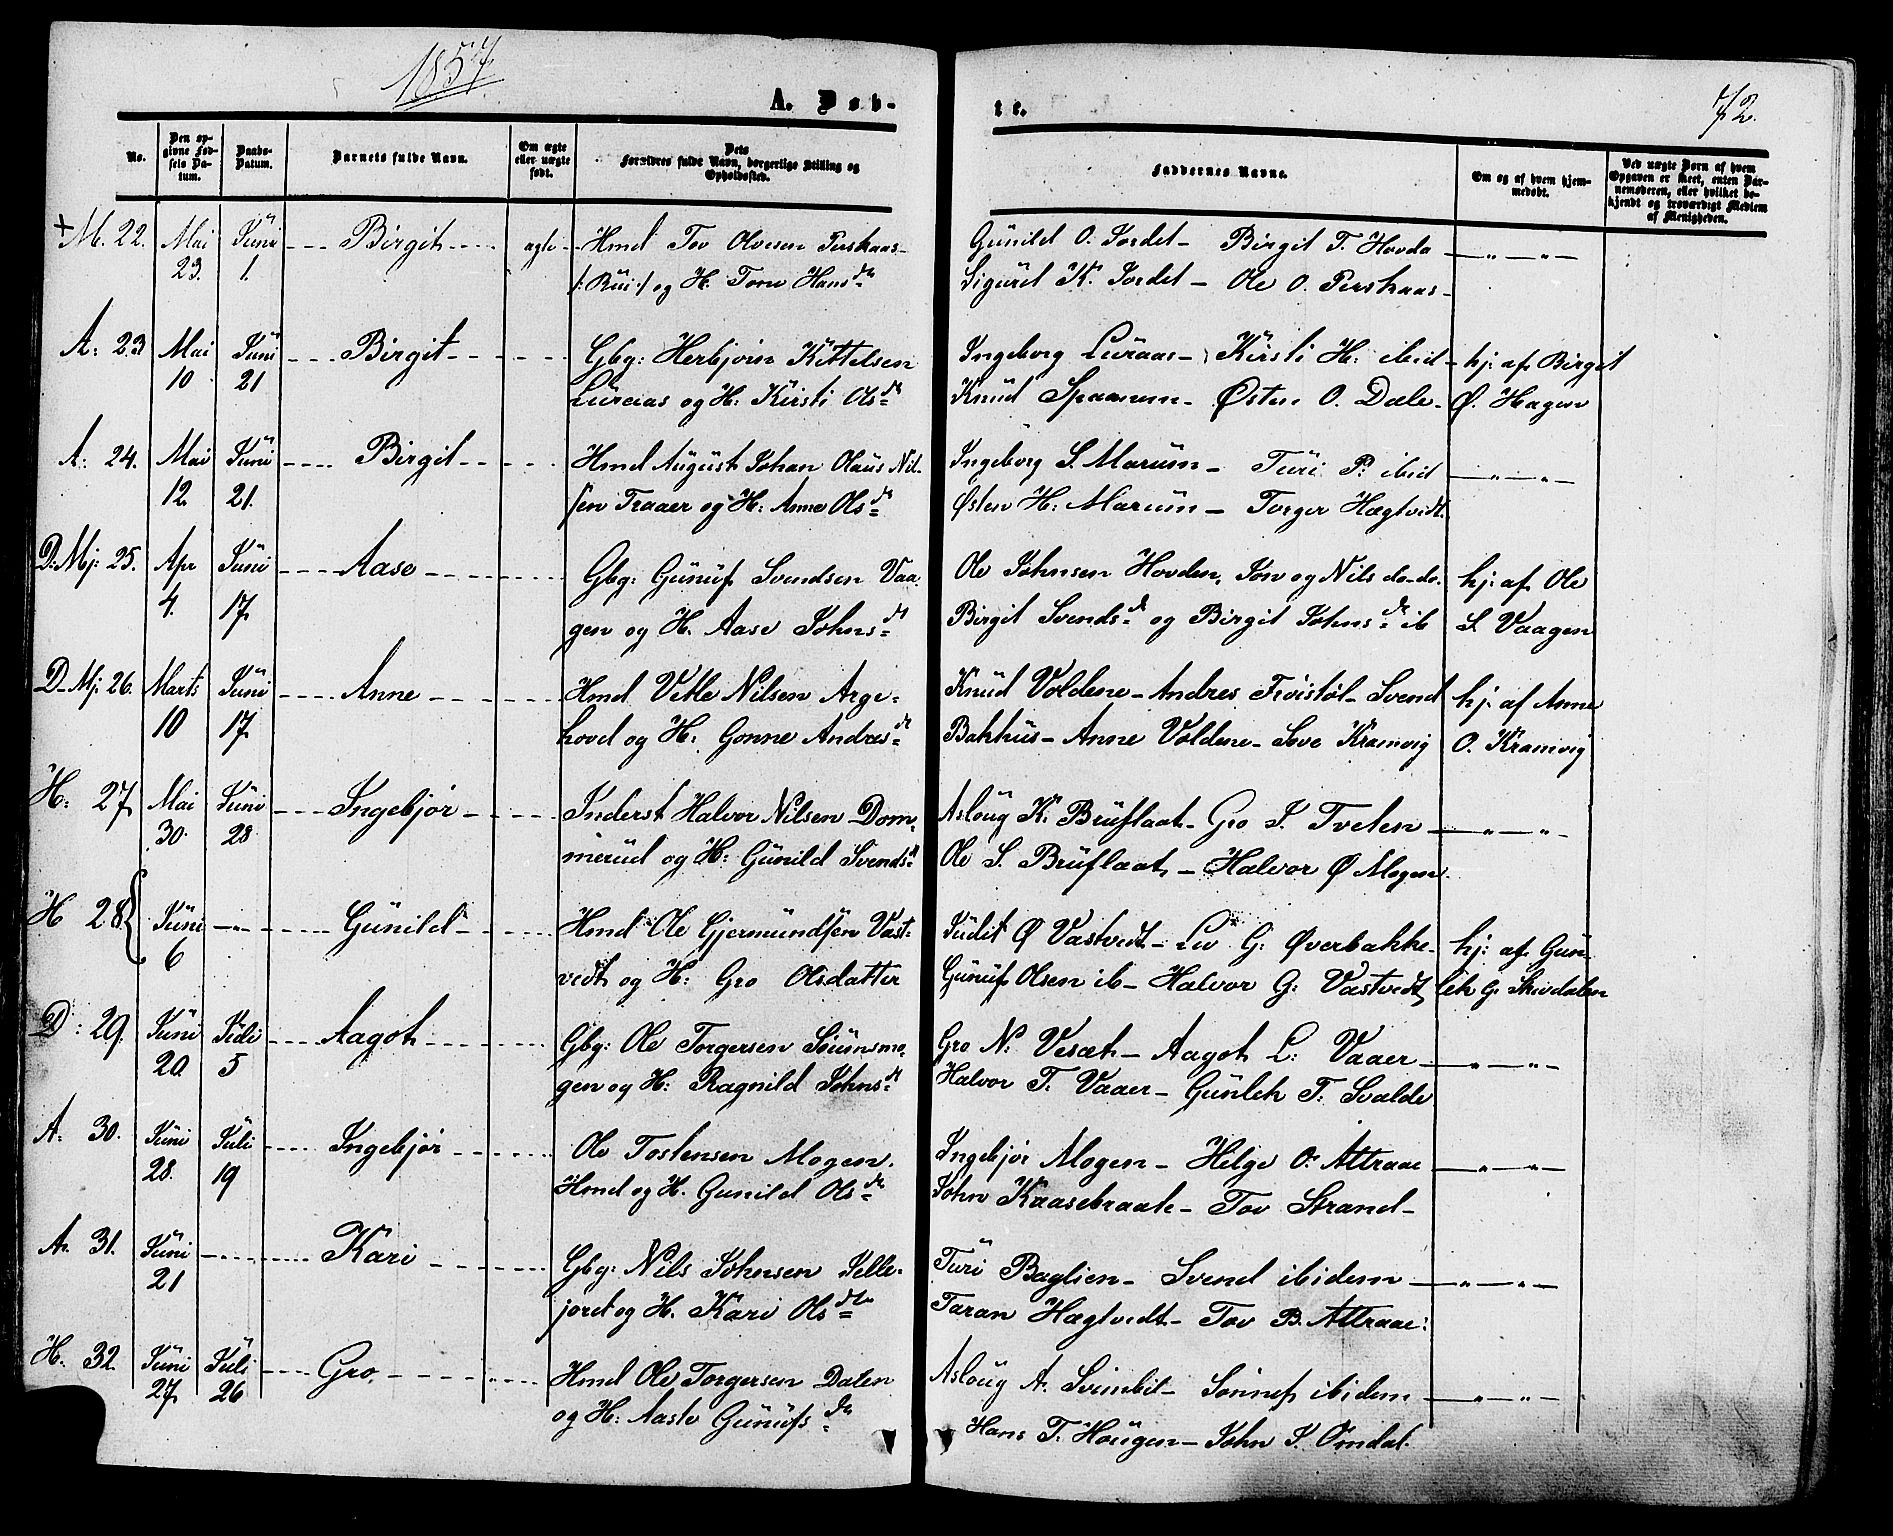 1857.
A. Døb-
te.
72.
No.
Den opgivne Fødsels Datum.
Daabs-Datum.
Barnets fulde Navn.
Om ægte eller uægte født.
Dets Forældres fulde Navn, borgerlige Stilling og Opholdssted.
Faddernes Navne.
Om og af hvem hjemmedøbt.
Ved uægte Børn af hvem Opgaven er skeet, enten Barnemoderen, eller hvilket bekjendt og troværdigt Medlem af Menigheden.
+ M. 22. Mai Juni Birgit ægte Hmd Tov Olvesen Perskaas- Gunild O. Jordet - Birgit T. Hovda
23. 1. /: Rui :/ og H. Tone Hansdr Sigurd K. Jordet - Ole O. Perskaas -
A: 23 Mai Juni Birgit Gbg: Herbjørn Kittelsen Ingeborg Luraas - Kirsti H: ibid hj: af Birgit
10 21 Luraas og H: Kirsti Olsdr Knud Spaanum - Østen O. Dale - Ø. Hagen
A: 24. Mai Juni Birgit Hmd August Johan Olaus Nil- Ingeborg S. Marum - Turi P: ibid
12. 21. sen Traaer og H: Anne Olsdr Østen H: Marum - Torger Hægtvedt.
D: Mj: 25. Apr Juni Aase Gbg: Gunuf Svendsen Vaa- Ole Johnsen Hovden, Jon og Nils do - do. hj: af Ole
4. 17. gen og H. Aase Johnsdr Birgit Svendsdr og Birgit Johnsdr ib S. Vaagen
D - Mj: 26. Marts Juni Anne Hmd Vetle Nilsen Arge- Knud Voldene - Andres Frøistøl - Svend hj: af Anne
10 17. hovd og H. Gonne Andresdr Bakhus - Anne Voldene - Sove Kramvig O. Kramvig
H: 27 Mai Juni Ingebjør Inderst Halvor Nilsen Dom- Asloug K: Bruflaat - Gro S. Tveten
30. 28 merud og H: Gunild Svendsdr Ole S. Bruflaat - Halvor Ø Mogen.
H 28 Juni Gunild Hmd Ole Gjermundsen Vast- Judit Ø Vastvedt - Liv G: Øverbakke - hj: af Gun-
6 vedt og H: Gro Olsdatter Gunuf Olsen ib - Halvor G: Vastvedt lek G: Skirdalen
D: 29. Juni Juli Aagot Gbg: Ole Torgersen Søiumsmo- Gro N: Vesæt - Aagot L: Vaaer
20. 5 gen og H: Ragnild Johnsdr Halvor T. Vaaer - Gunlek T: Svalde
A: 30. Juni Juli Ingebjør Ole Tostensen Mogen. Ingebjør Mogen - Helge O. Attraae
28. 19 Hmd og H. Gunild Olsdr John Kaasebraate - Tov Strand -
A. 31. Juni Kari Gbg: Nils Johnsen Selle- Turi Baglien - Svend ibidem
21 joret og H. Kari Olsdtr Taran Hægtvedt - Tov B. Attraae:
H. 32. Juni Juli Gro. Hmd Ole Torgersen Dalen Asloug A. Svimbil - Sønnef ibidem
27. 26 og H: Aaste Gunufsdr Hans T. Haugen - John J. Omdal.